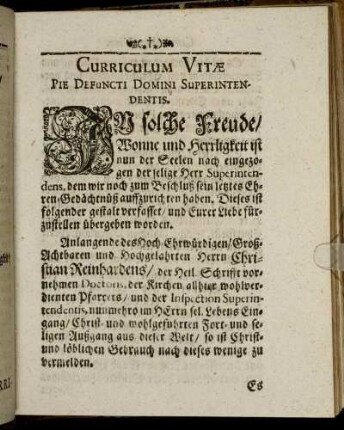 CURRICULUM VITÆ
PIE DEFUNCTI DOMINI SUPERINTEN-
DENTIS.
IN solche Freude/
Wonne und Herrligkeit ist
nun der Seelen nach eingezo-
gen der selige Herr Superinten-
dens, dem wir noch zum Beschluß sein letztes Eh-
ren-Gedächtnüß auffzurichten haben. Dieses ist
folgender gestalt verfasset/ und Eurer Liebe für-
zustellen übergeben worden.
Anlangende des Hoch-Ehrwürdigen/ Groß-
Achtbaren und Hochgelahrten Herrn Chri-
stian Reinhardens/ der Heil. Schrifft vor-
nehmen Doctoris, der Kirchen allhier wohlver-
dienten Pfarrers/ und der Inspection Superin-
tendentis, nunmehro im HErrn sel. Lebens Ein-
gang/ Christ- und wohlgeführten Fort- und se-
ligen Außgang aus dieser Welt/ so ist Christ-
und löblichen Gebrauch nach dieses wenige zu
vermelden.
Es